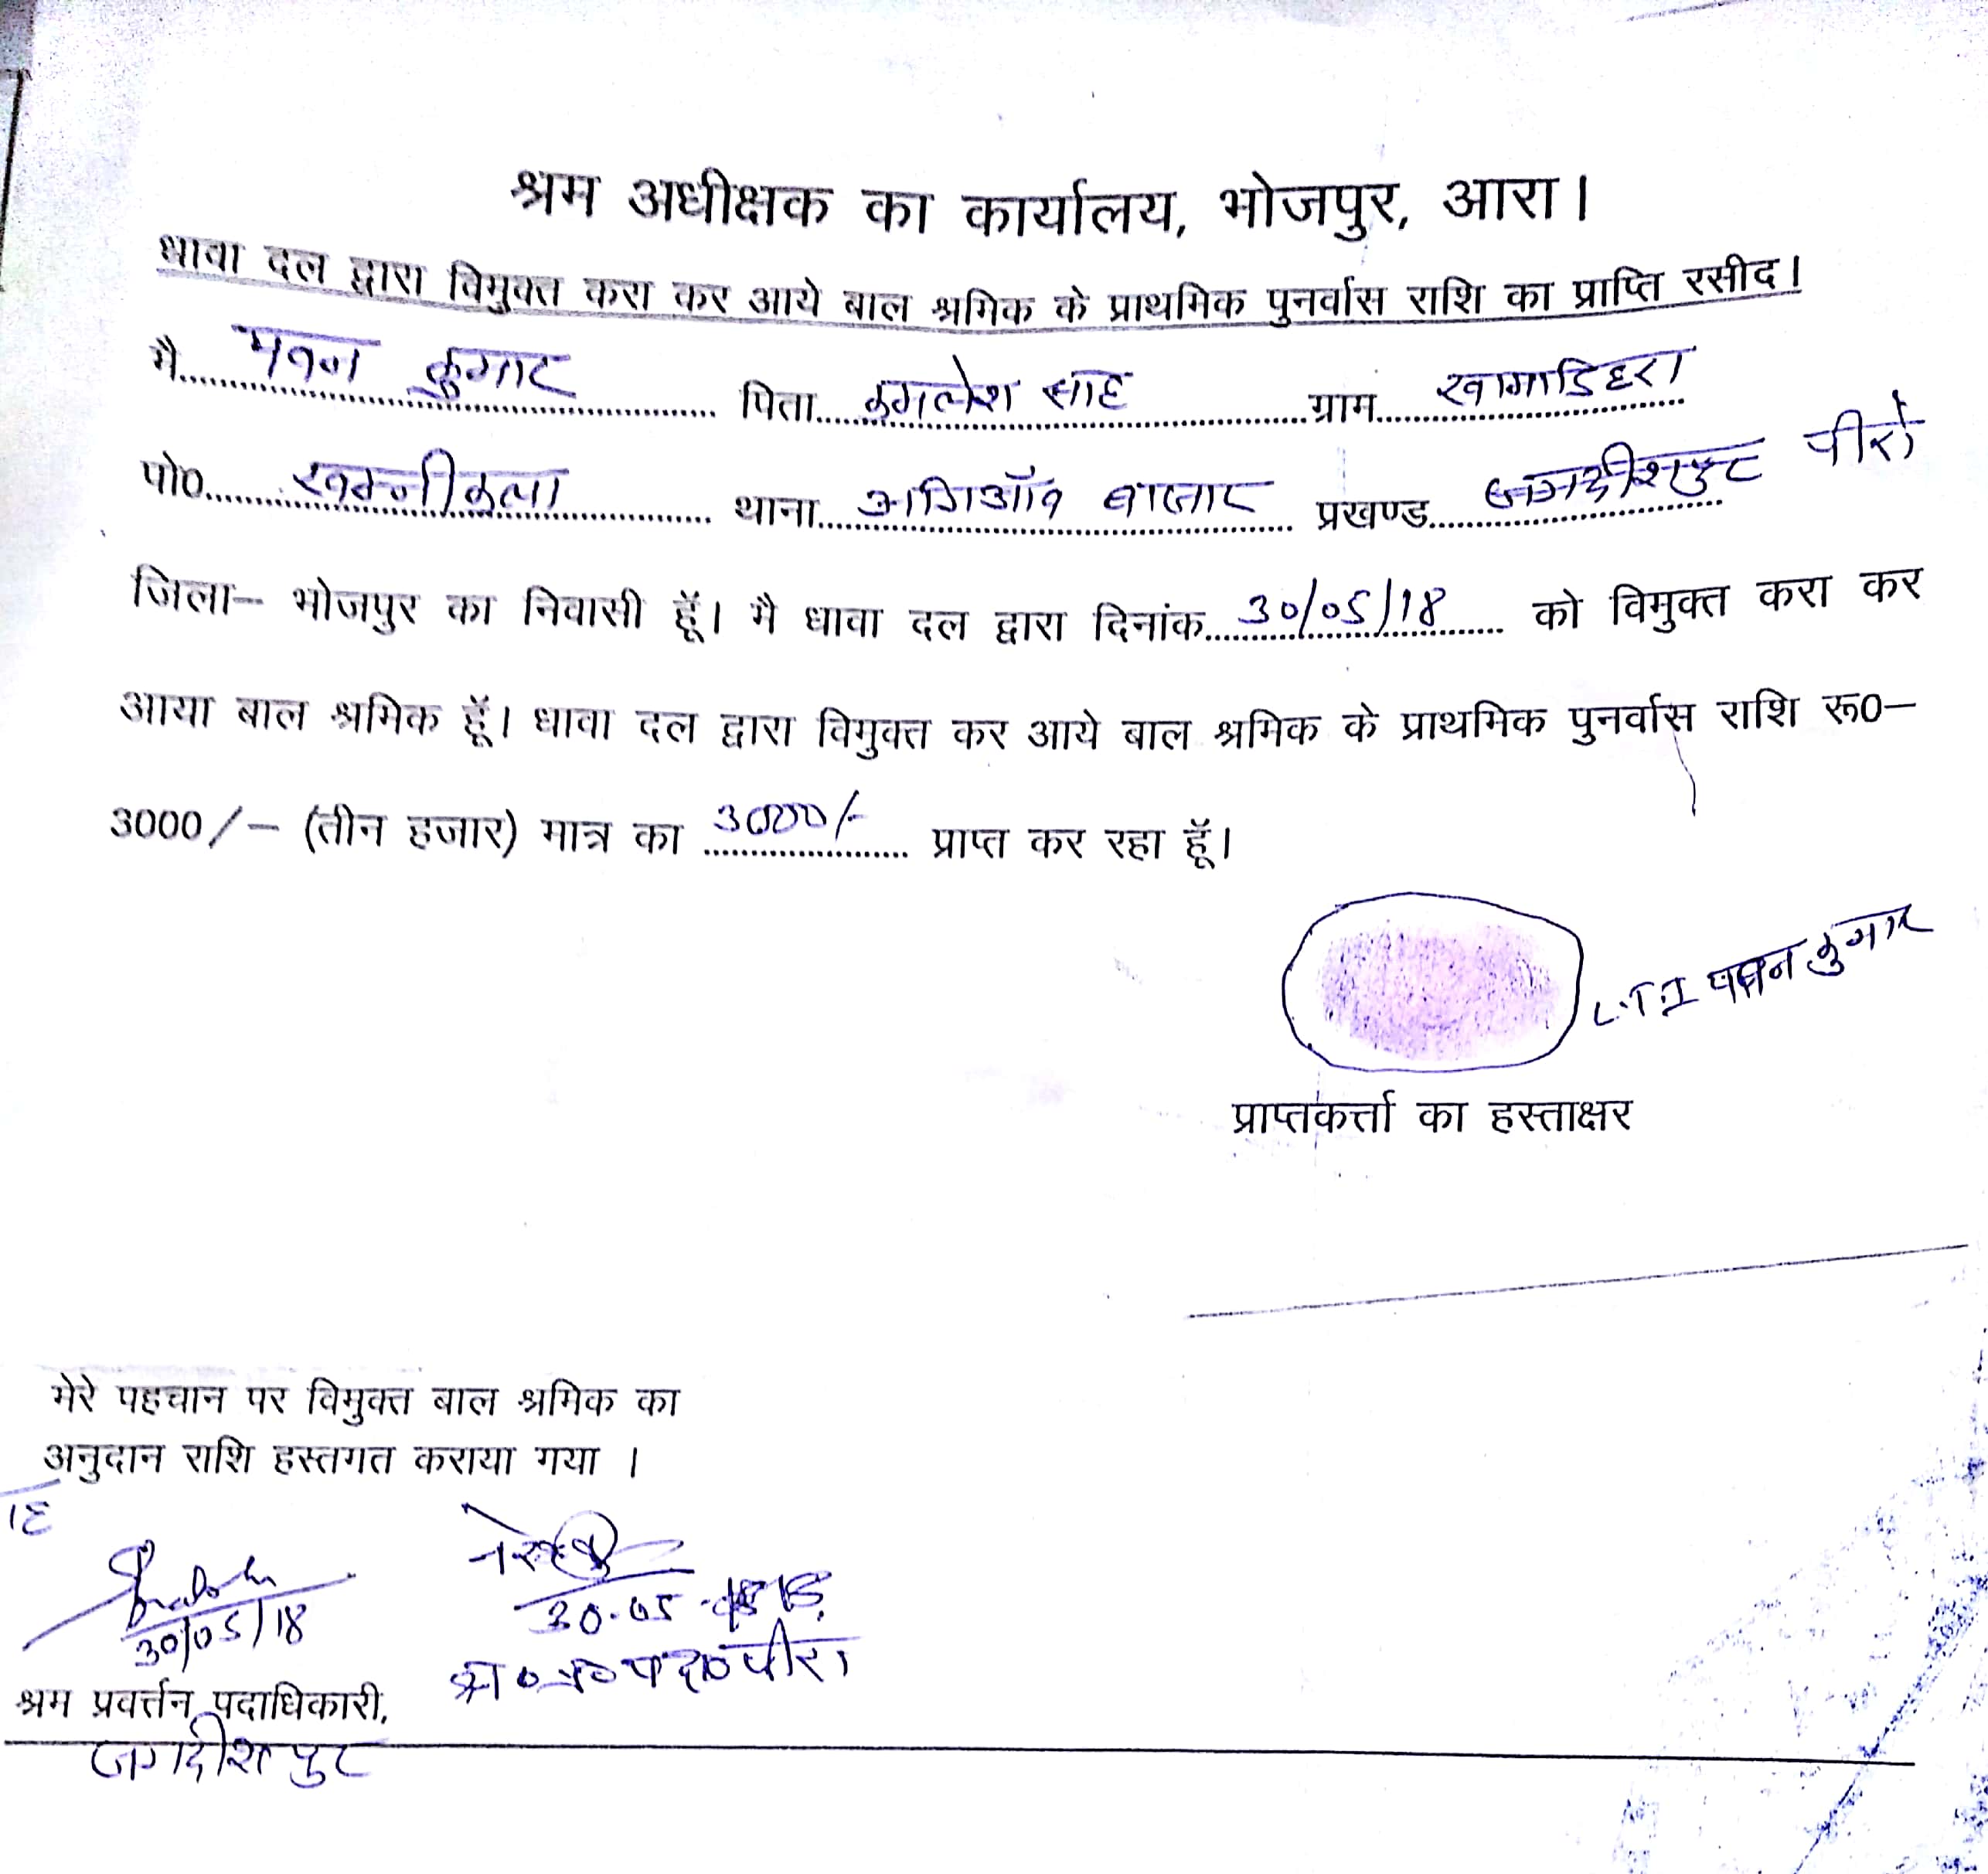 श्रम अधीक्षक का कार्यालय, भोजपुर, आरा।
धावा दल द्वारा विमुक्त करा कर आये बाल श्रमिक के प्राथमिक पुनर्वास राशि का प्राप्ति रसीद।
मै पवन कुमार पिता कमलेश साह ग्राम खामाडिहरा
पो० थाना अगिआँव बाजार प्रखण्ड जगदीशपुर पीरो
जिला– भोजपुर का निवासी हूँ। मै धावा दल द्वारा दिनांक 30/05/18 को विमुक्त करा कर
आया बाल श्रमिक हूँ। धावा दल द्वारा विमुक्त कर आये बाल श्रमिक के प्राथमिक पुनर्वास राशि रू०–
3000/– (तीन हजार) मात्र का 3000/- प्राप्त कर रहा हूँ।
L.T.I पवन कुमार
प्राप्तकर्त्ता का हस्ताक्षर
मेरे पहचान पर विमुक्त बाल श्रमिक का
अनुदान राशि हस्तगत कराया गया ।
30/05/18
30.05.18
श्र०प्र०पदा०पीरो
श्रम प्रवर्त्तन पदाधिकारी,
जगदीशपुर